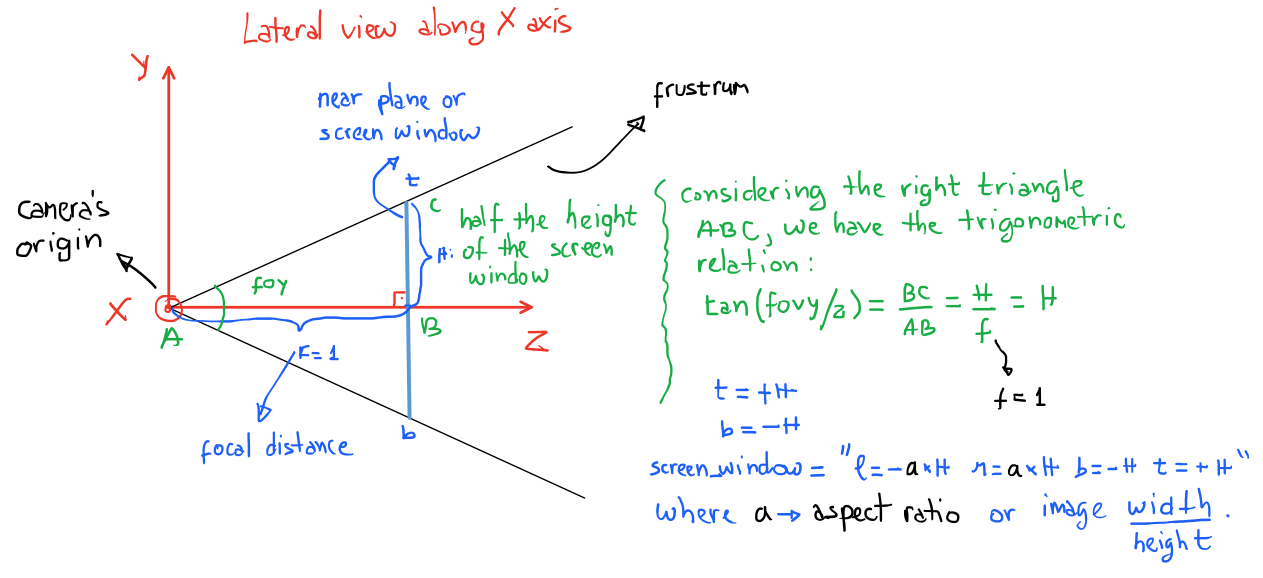 Lateral view along X axis
y
near plane or
screen window
frustrum
t
C
camera's
origin
half the height
H: of the screen
window
foy
X
A
B
Z
F=1
focal distance
b
considering the right triangle
ABC, we have the trigonometric
relation:
tan(fovy/2) = BC/AB = H/f = H
f=1
t = +H
b = -H
screen_window = "l=-a*H r=a*H b=-H t=+H"
where a → aspect ratio or image width/height.